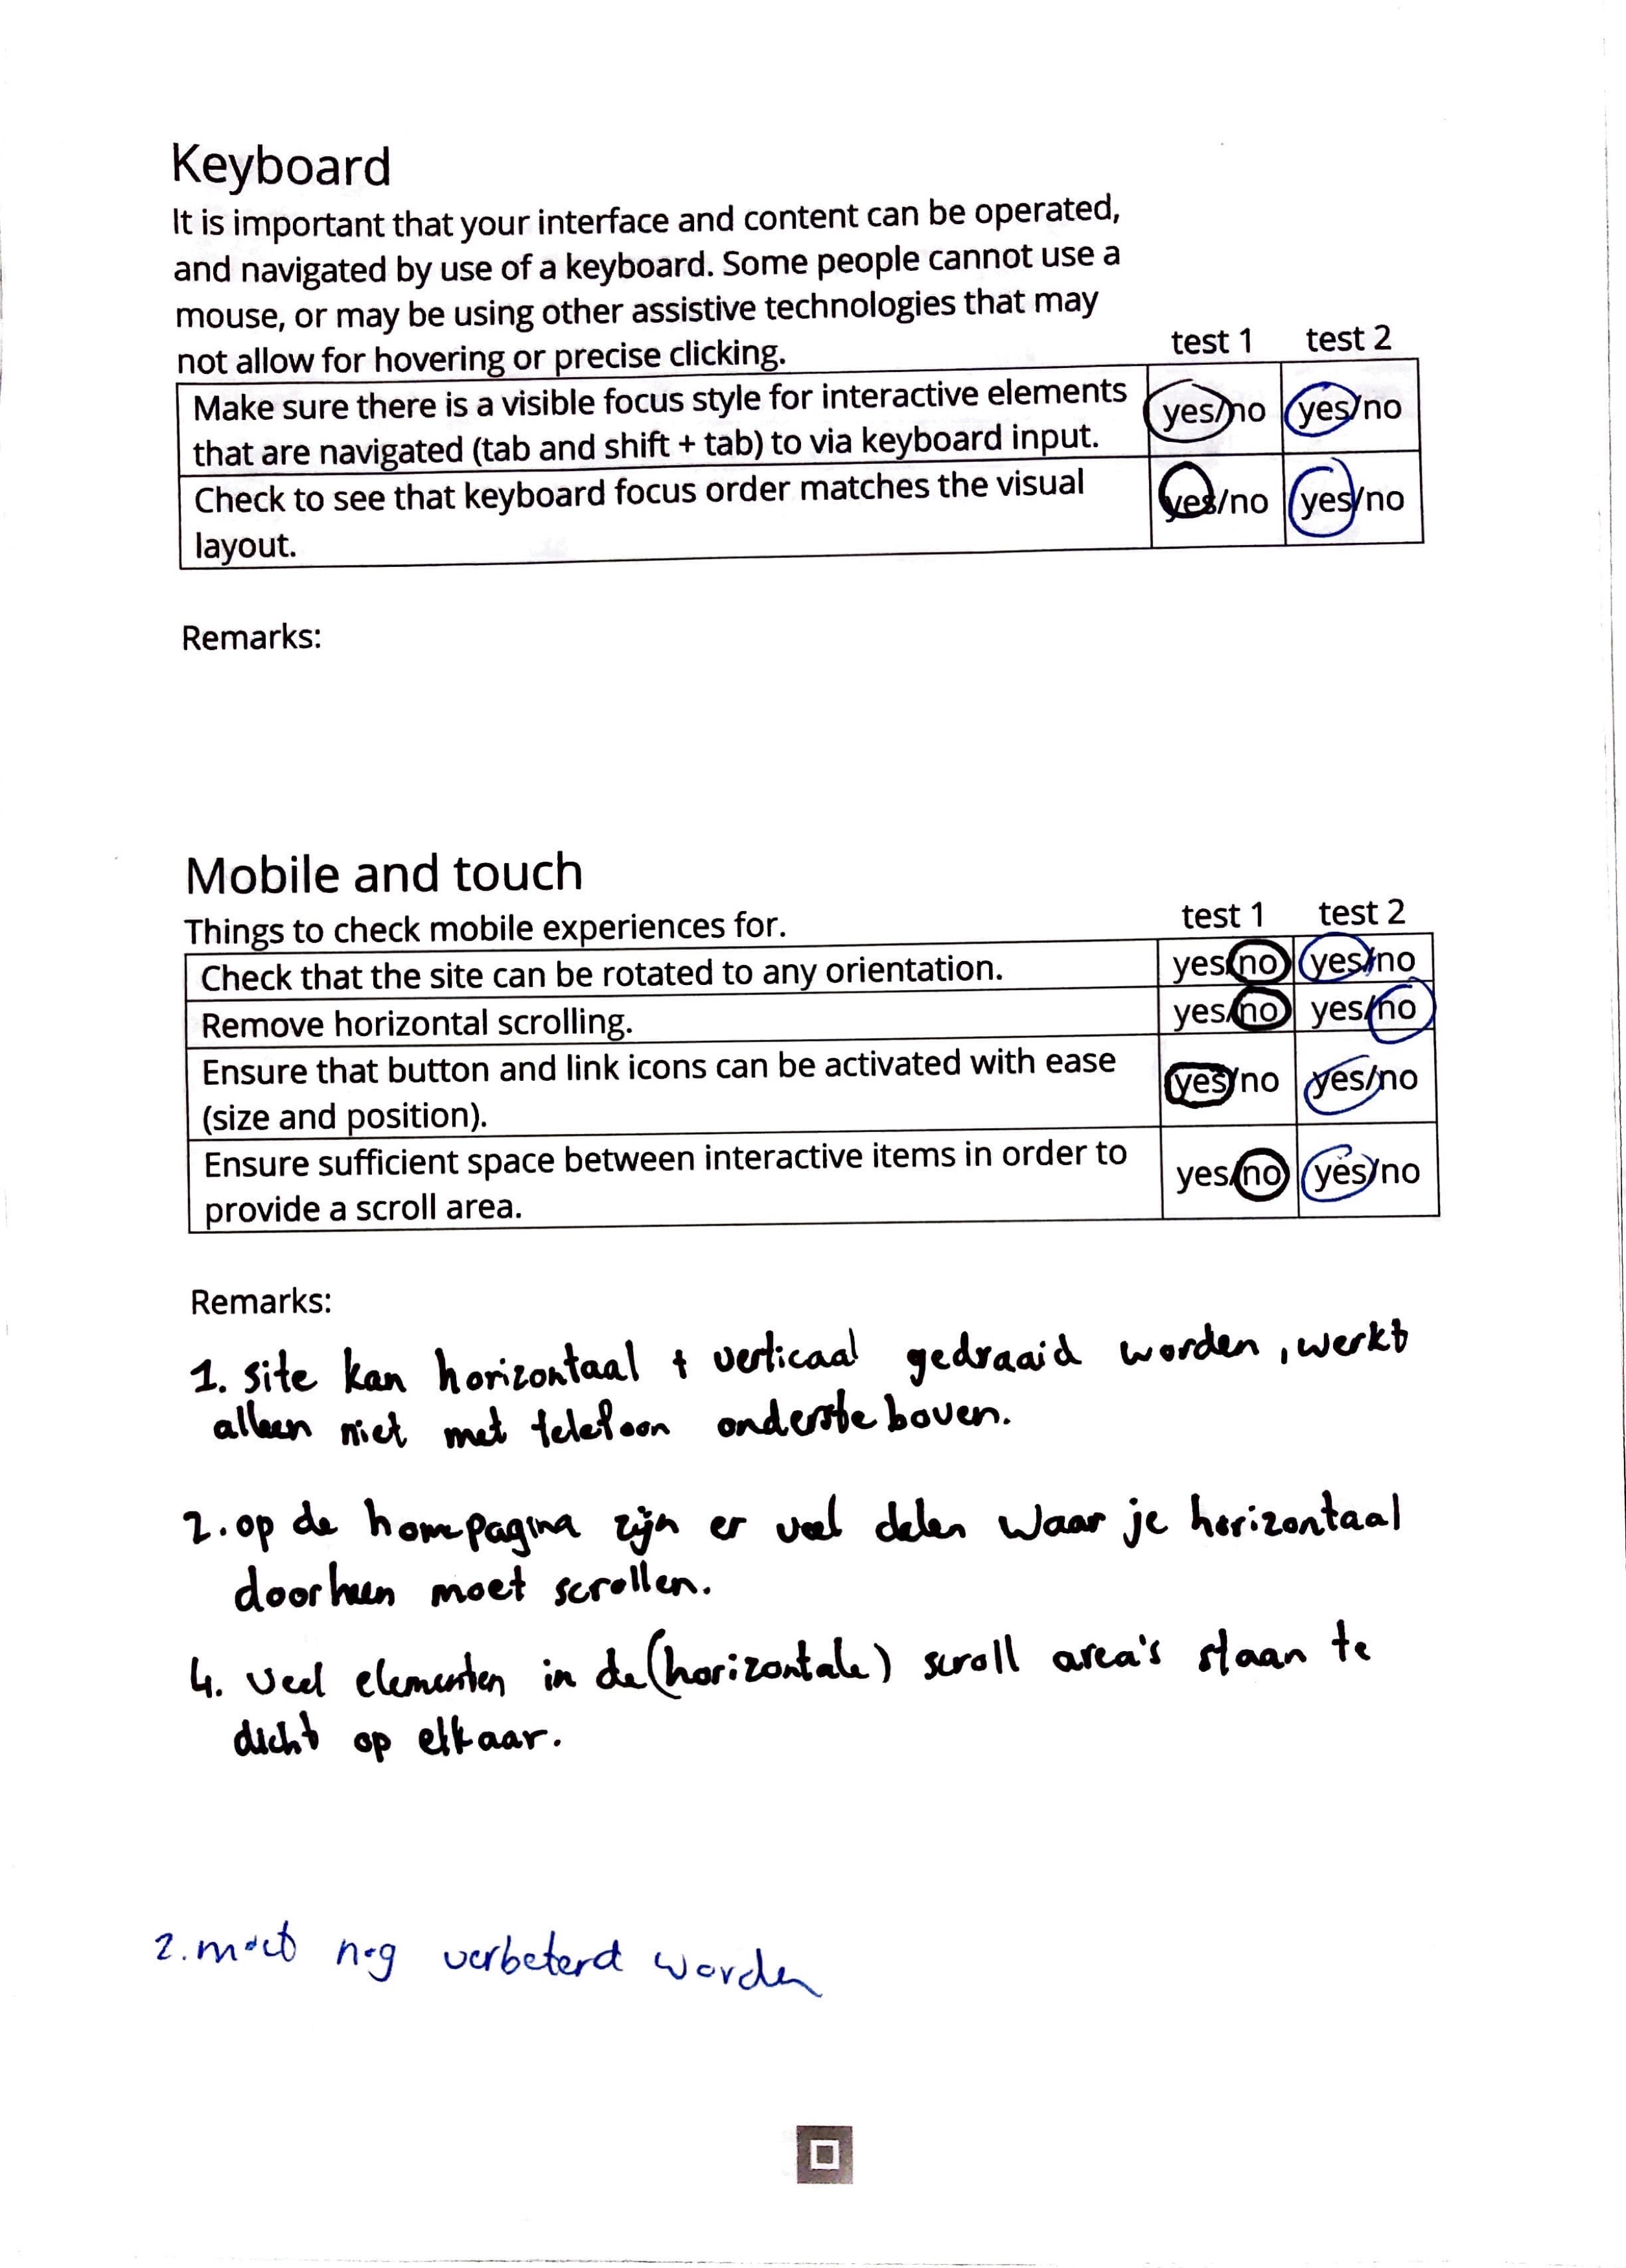 Keyboard
It is important that your interface and content can be operated,
and navigated by use of a keyboard. Some people cannot use a
mouse, or may be using other assistive technologies that may
not allow for hovering or precise clicking.
test 1 test 2
Make sure there is a visible focus style for interactive elements
that are navigated (tab and shift + tab) to via keyboard input.
yes/no yes/no
Check to see that keyboard focus order matches the visual
layout.
yes/no yes/no
Remarks:
Mobile and touch
Things to check mobile experiences for.
test 1 test 2
Check that the site can be rotated to any orientation. yes/no yes/no
Remove horizontal scrolling. yes/no yes/no
Ensure that button and link icons can be activated with ease
(size and position).
yes/no yes/no
Ensure sufficient space between interactive items in order to
provide a scroll area.
yes/no yes/no
Remarks:
1. site kan horizontaal + verticaal gedraaid worden, werkt
alleen niet met telefoon ondersteboven.
2. op de homepagina zijn er veel delen waar je horizontaal
doorheen moet scrollen.
4. veel elementen in de (horizontale) scroll area's staan te
dicht op elkaar.
2. moet nog verbeterd worden